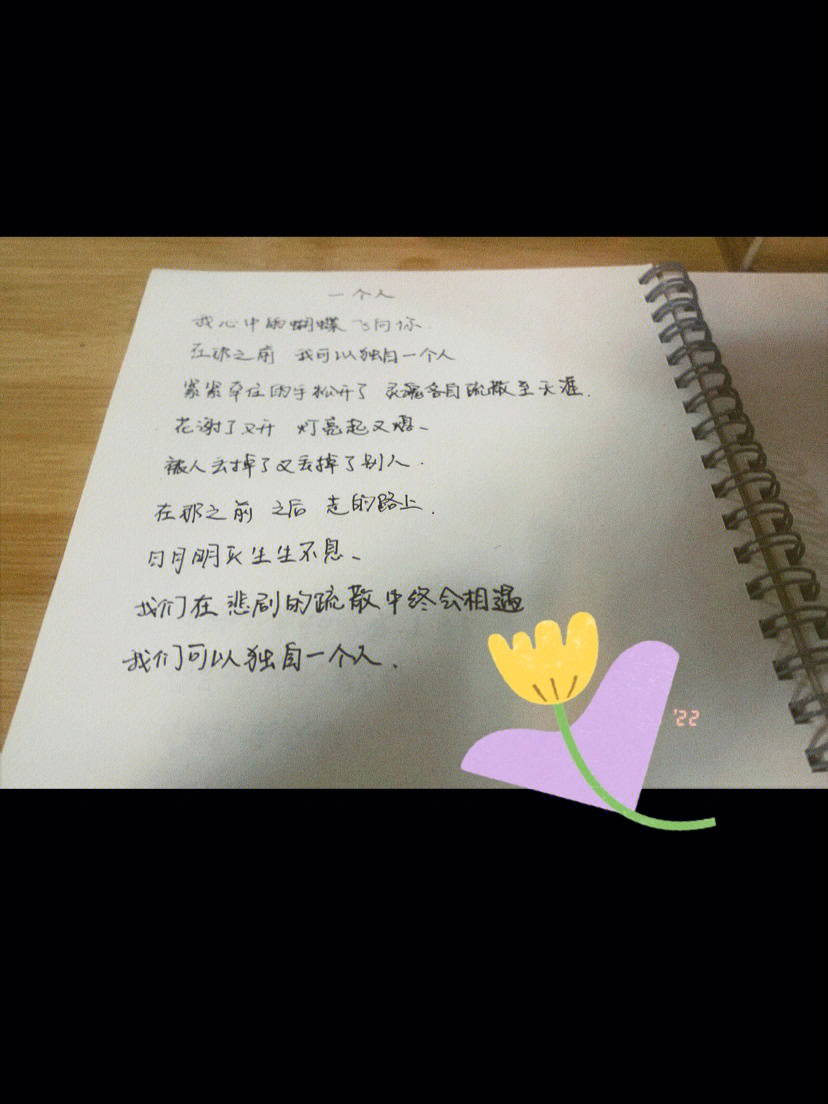 一个人
我心中的蝴蝶飞向你.
在那之前 我可以独自一个人
紧紧牵住的手松开了 灵魂各自疏散至天涯.
花谢了又开 灯亮起又熄、
被人丢掉了又丢掉了别人.
在那之前 之后 走的路上.
日月明灭生生不息、
我们在悲剧的疏散中终会相遇
我们可以独自一个人.
'22